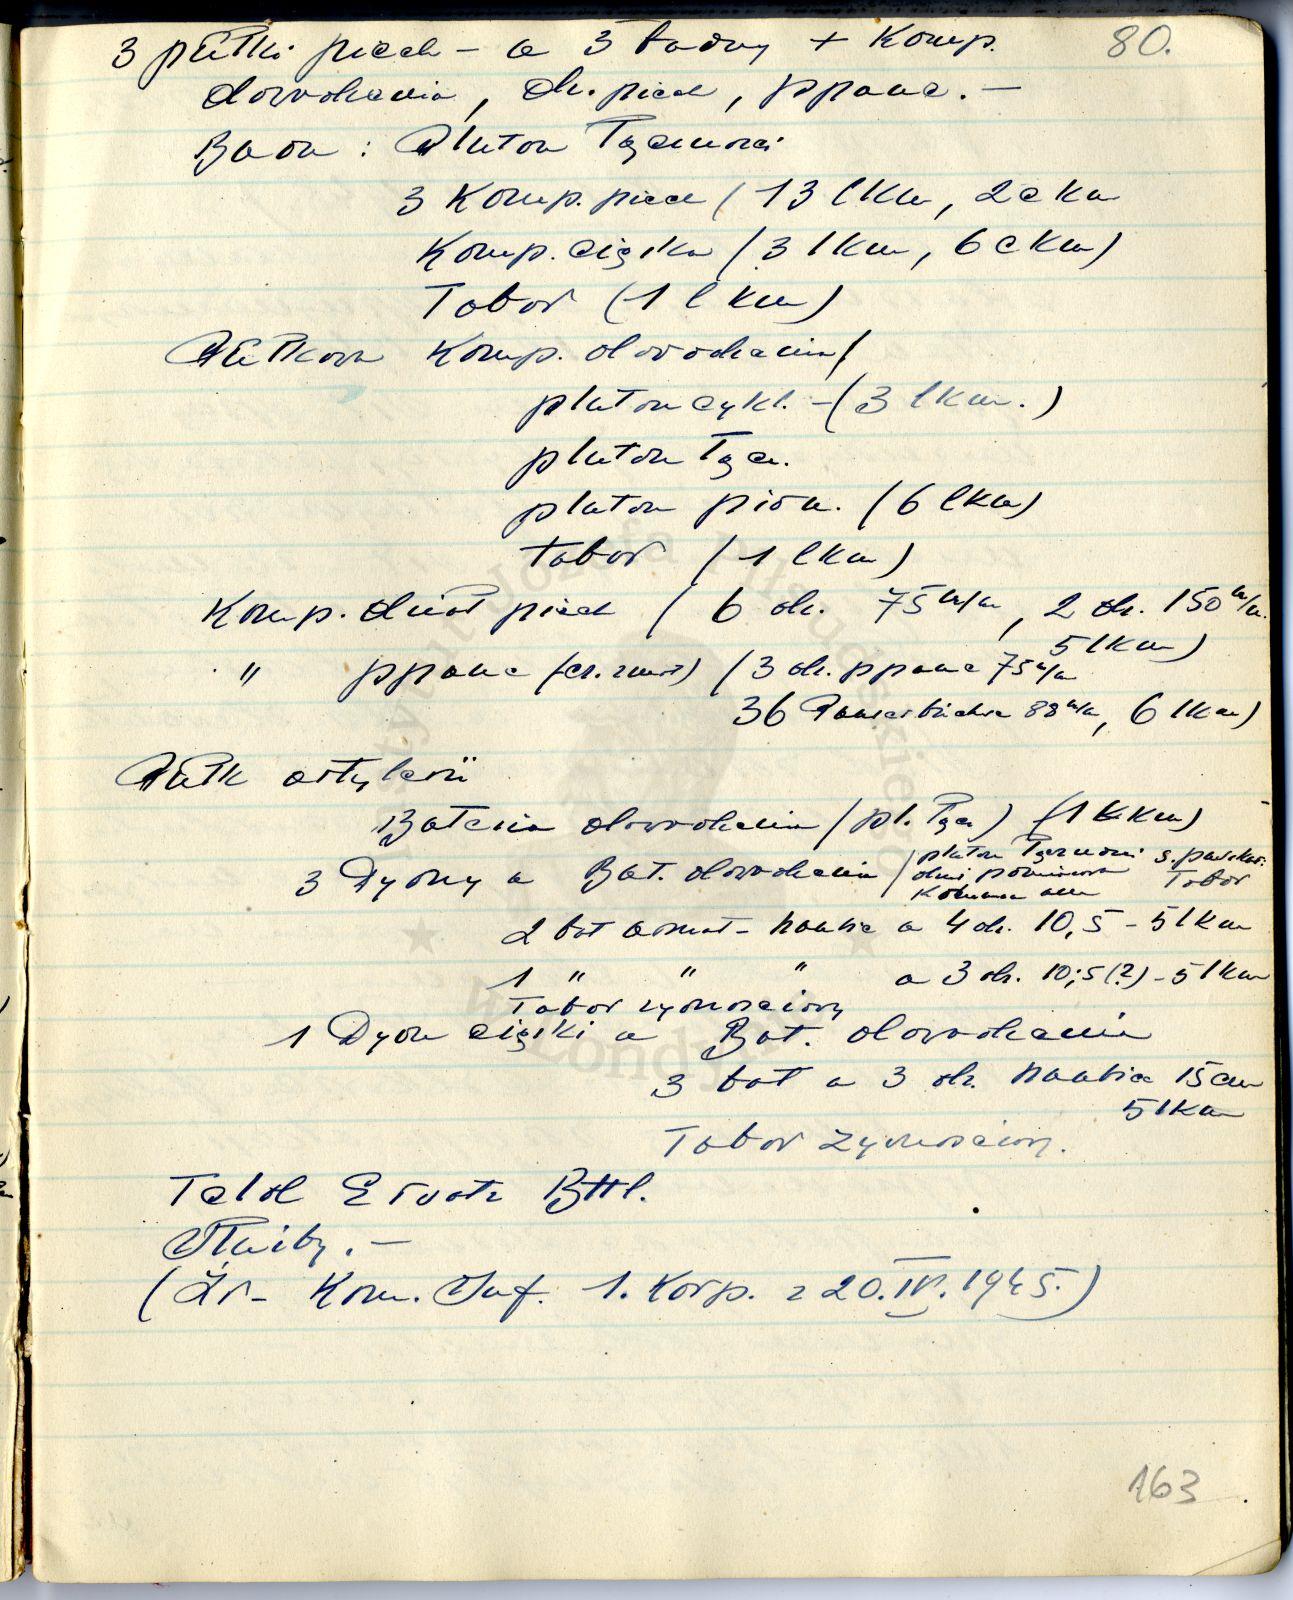 80.
3 pułki piech - a 3 baony + Komp.
dowodzenia, dz. piech, ppanc. -
Baon : Pluton Łączności
3 Komp. piech ( 13 lkm, 2 ckm
Komp. ciężka ( 3 lkm, 6 ckm)
Tabor ( 1 lkm)
Pułkowa Komp. dowodzenia /
pluton cykl. - ( 3 lkm. )
pluton Łącz.
pluton pion. ( 6 lkm)
tabor ( 1 lkm)
Komp. dział piech ( 6 dz. 75 m/m, 2 dz. 150 m/m.
5 lkm)
" ppanc ( 3 dz. ppanc 75 m/m
36 Panzerbüchse 88 m/m, 6 lkm)
Pułk artylerii
Bateria dowodzenia ( pl. Łącz ) (1 lkm)
3 Dyony a Bat. dowodzenia ( pluton Łączności
Tabor
Kolumna am
2 bat armat - haubic a 4 dz. 10,5 - 5 lkm
1 " " " a 3 dz. 10,5 (?) - 5 lkm
Tabor żywnościowy
1 Dyon ciężki a Bat. dowodzenia
3 bat a 3 dz. haubic 15 cm
5 lkm
Tabor żywnościowy.
Feld Ersatz Btl.
Służby. -
(Źr - Kom. Inf. 1. Korp. z 20. IV. 1945.)
163
Instytut Józefa Piłsudskiego
w Londynie